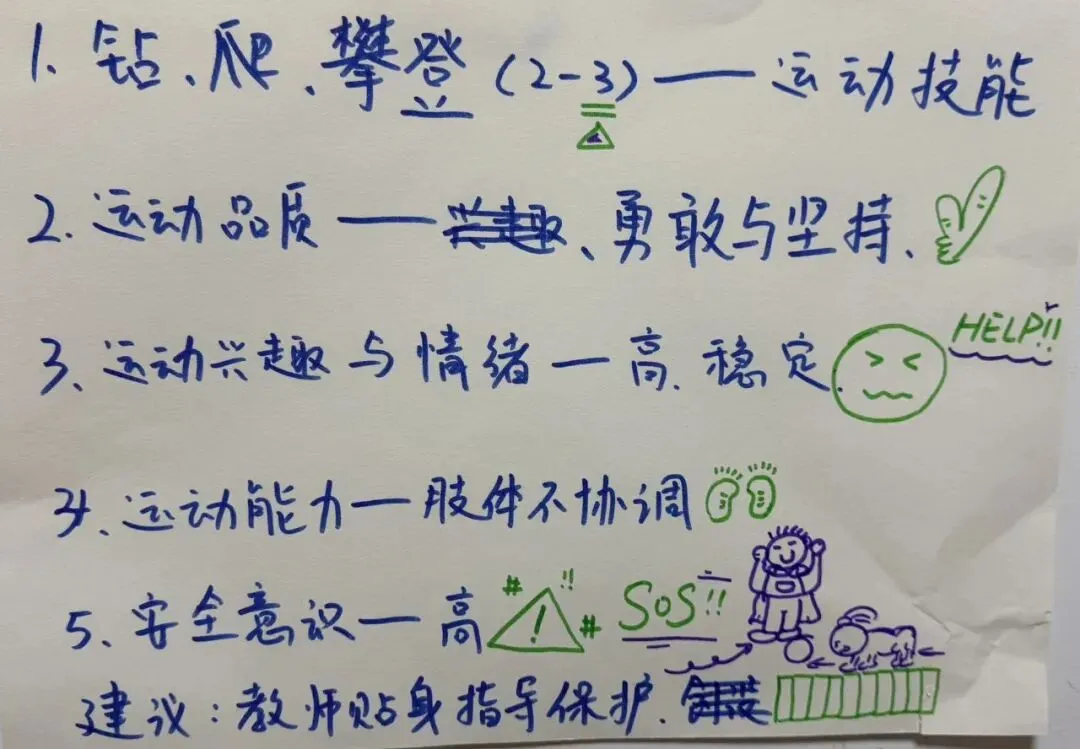 1. 钻、爬、攀登（2-3）——运动技能
2. 运动品质——兴趣、勇敢与坚持、
3、运动兴趣与情绪—高、稳定、HELP!!
4、运动能力—肢体不协调
5、安全意识—高 ! !! SOS!!
建议：教师贴身指导保护、